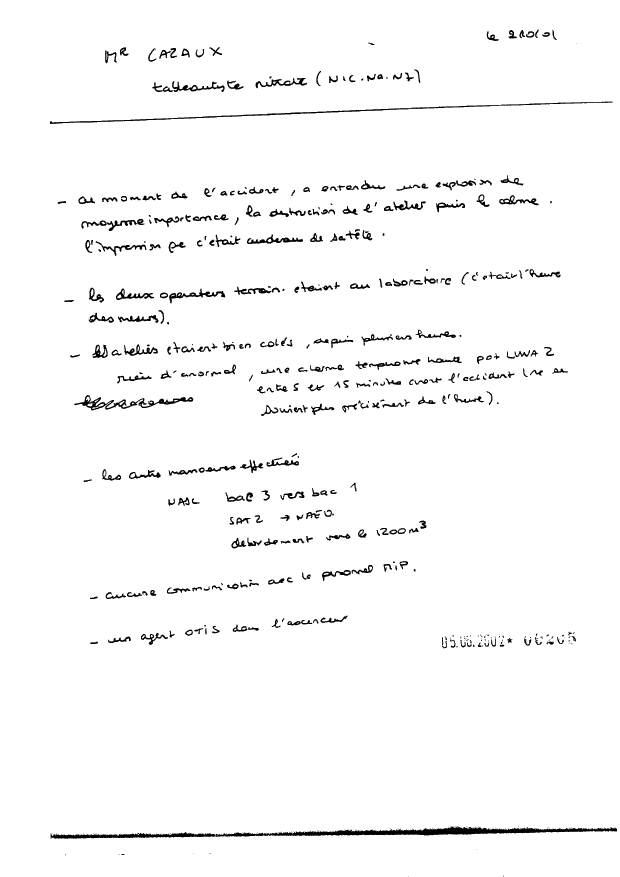 le 210101
MR CAZAUX
tableautiste nitrate (NIC.NA.N7)
- au moment de l'accident, a entendu une explosion de
moyenne importance, la destruction de l'atelier puis le calme.
l'impression que c'était au dessus de sa tête.
- les deux operateurs terrain étaient au laboratoire (c'était l'heure
des mesures).
- les ateliers étaient bien calés, depuis plusieurs heures.
rien d'anormal, une alarme temperature haute pot LUWA 2
entre 5 et 15 minutes avant l'accident (ne se
souvient plus précisément de l'heure).
- les autres manoeuvres effectuées
NASC bac 3 vers bac 1
SAT 2 → NAEO
debordement vers le 1200 M3
- aucune communication avec le personnel MiP.
- un agent OTIS dans l'ascenceur
05.06.2002* 00205